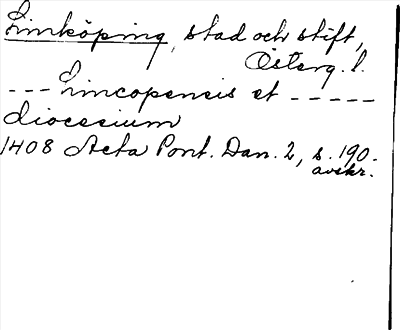 Linköping, stad och stift,
Österg. l.
--- Lincopensis et -----
diocesium
1408 Acta Pont. Dan. 2, s. 190.
avskr.